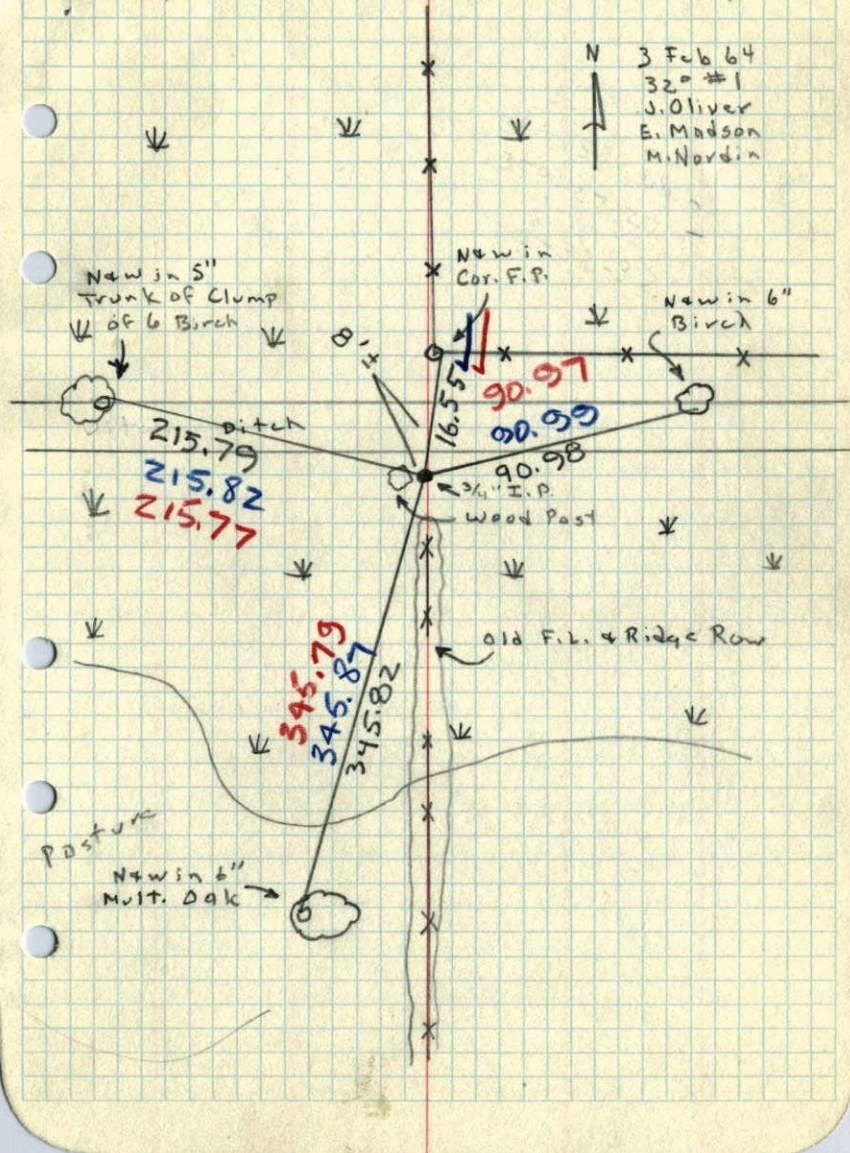 N
3 Feb 64
32° #1
J. Oliver
E. Madson
M. Nordin
N&W in
Cor. F.P.
N&W in 5"
Trunk of Clump
of 6 Birch
N&W in 6"
Birch
8'±
16.55
90.97
90.99
90.98
Ditch
215.79
215.82
215.77
3/4" I.P.
Wood Post
Old F.L. & Ridge Row
345.79
345.87
345.82
Pasture
N&W in 6"
Mult. Oak